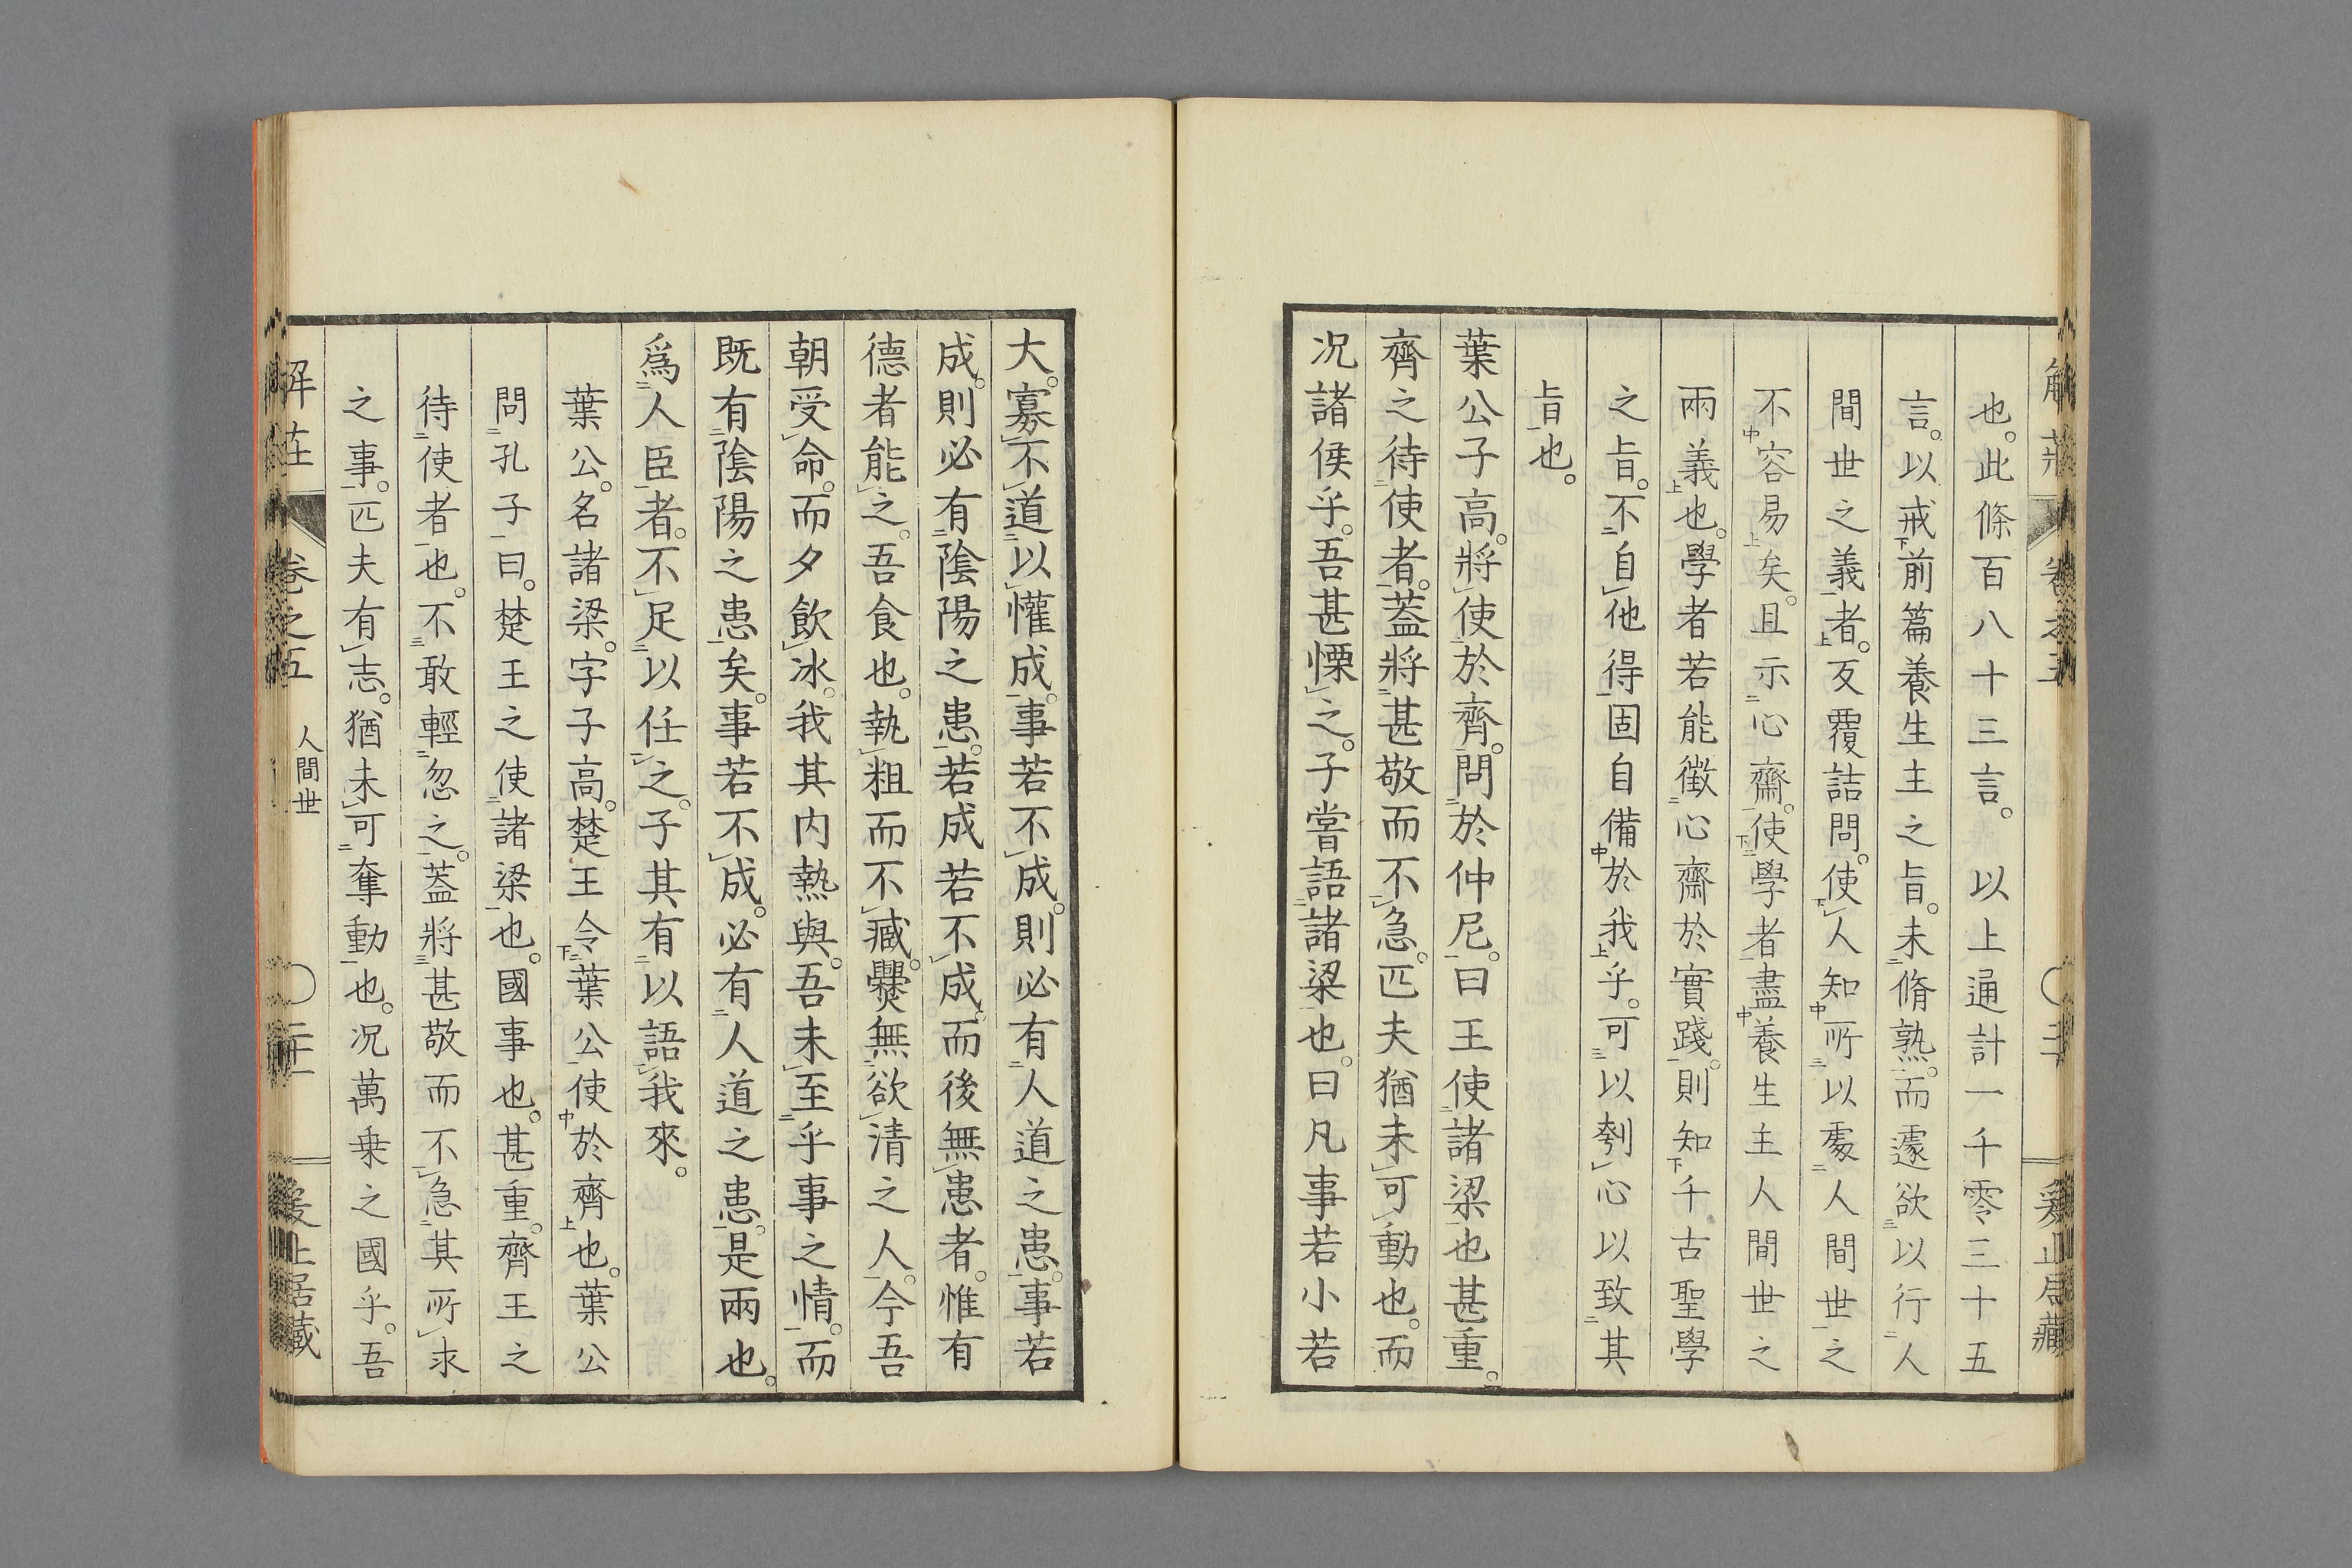 也。此條百八十三言。 以上通計一千零三十五
言。以戒前篇養生主之旨。未脩熟。而遽欲以行人
間世之義者。反覆詰問。使人知所以處人間世之
不容易矣。且示心齋。使學者盡養生主人間世之
兩義也。學者若能徵心齋於實踐。則知千古聖學
之旨。不自他得固自備於我乎。可以刳心以致其
旨也。
葉公子高。將使於齊。問於仲尼。曰王使諸梁也甚重。
齊之待使者。蓋將甚敬而不急。匹夫猶未可動也。而
况諸侯乎。吾甚慄之。子嘗語諸梁也。曰凡事若小若
大。寡不道以懽成。事若不成。則必有人道之患。事若
成。則必有陰陽之患。若成若不成。而後無患者。惟有
德者能之。吾食也。執粗而不臧。爨無欲清之人。今吾
朝受命。而夕飲冰。我其内熱與。吾未至乎事之情。而
既有陰陽之患矣。事若不成。必有人道之患。是兩也。
爲人臣者。不足以任之。子其有以語我來。
葉公。名諸梁。字子高。楚王令葉公使於齊也。葉公
問孔子曰。楚王之使諸梁也。國事也。甚重。齊王之
待使者也。不敢輕忽之。蓋將甚敬而不急其所求
之事。匹夫有志。猶未可奪動也。况萬乗之國乎。吾
卷之五
人間世